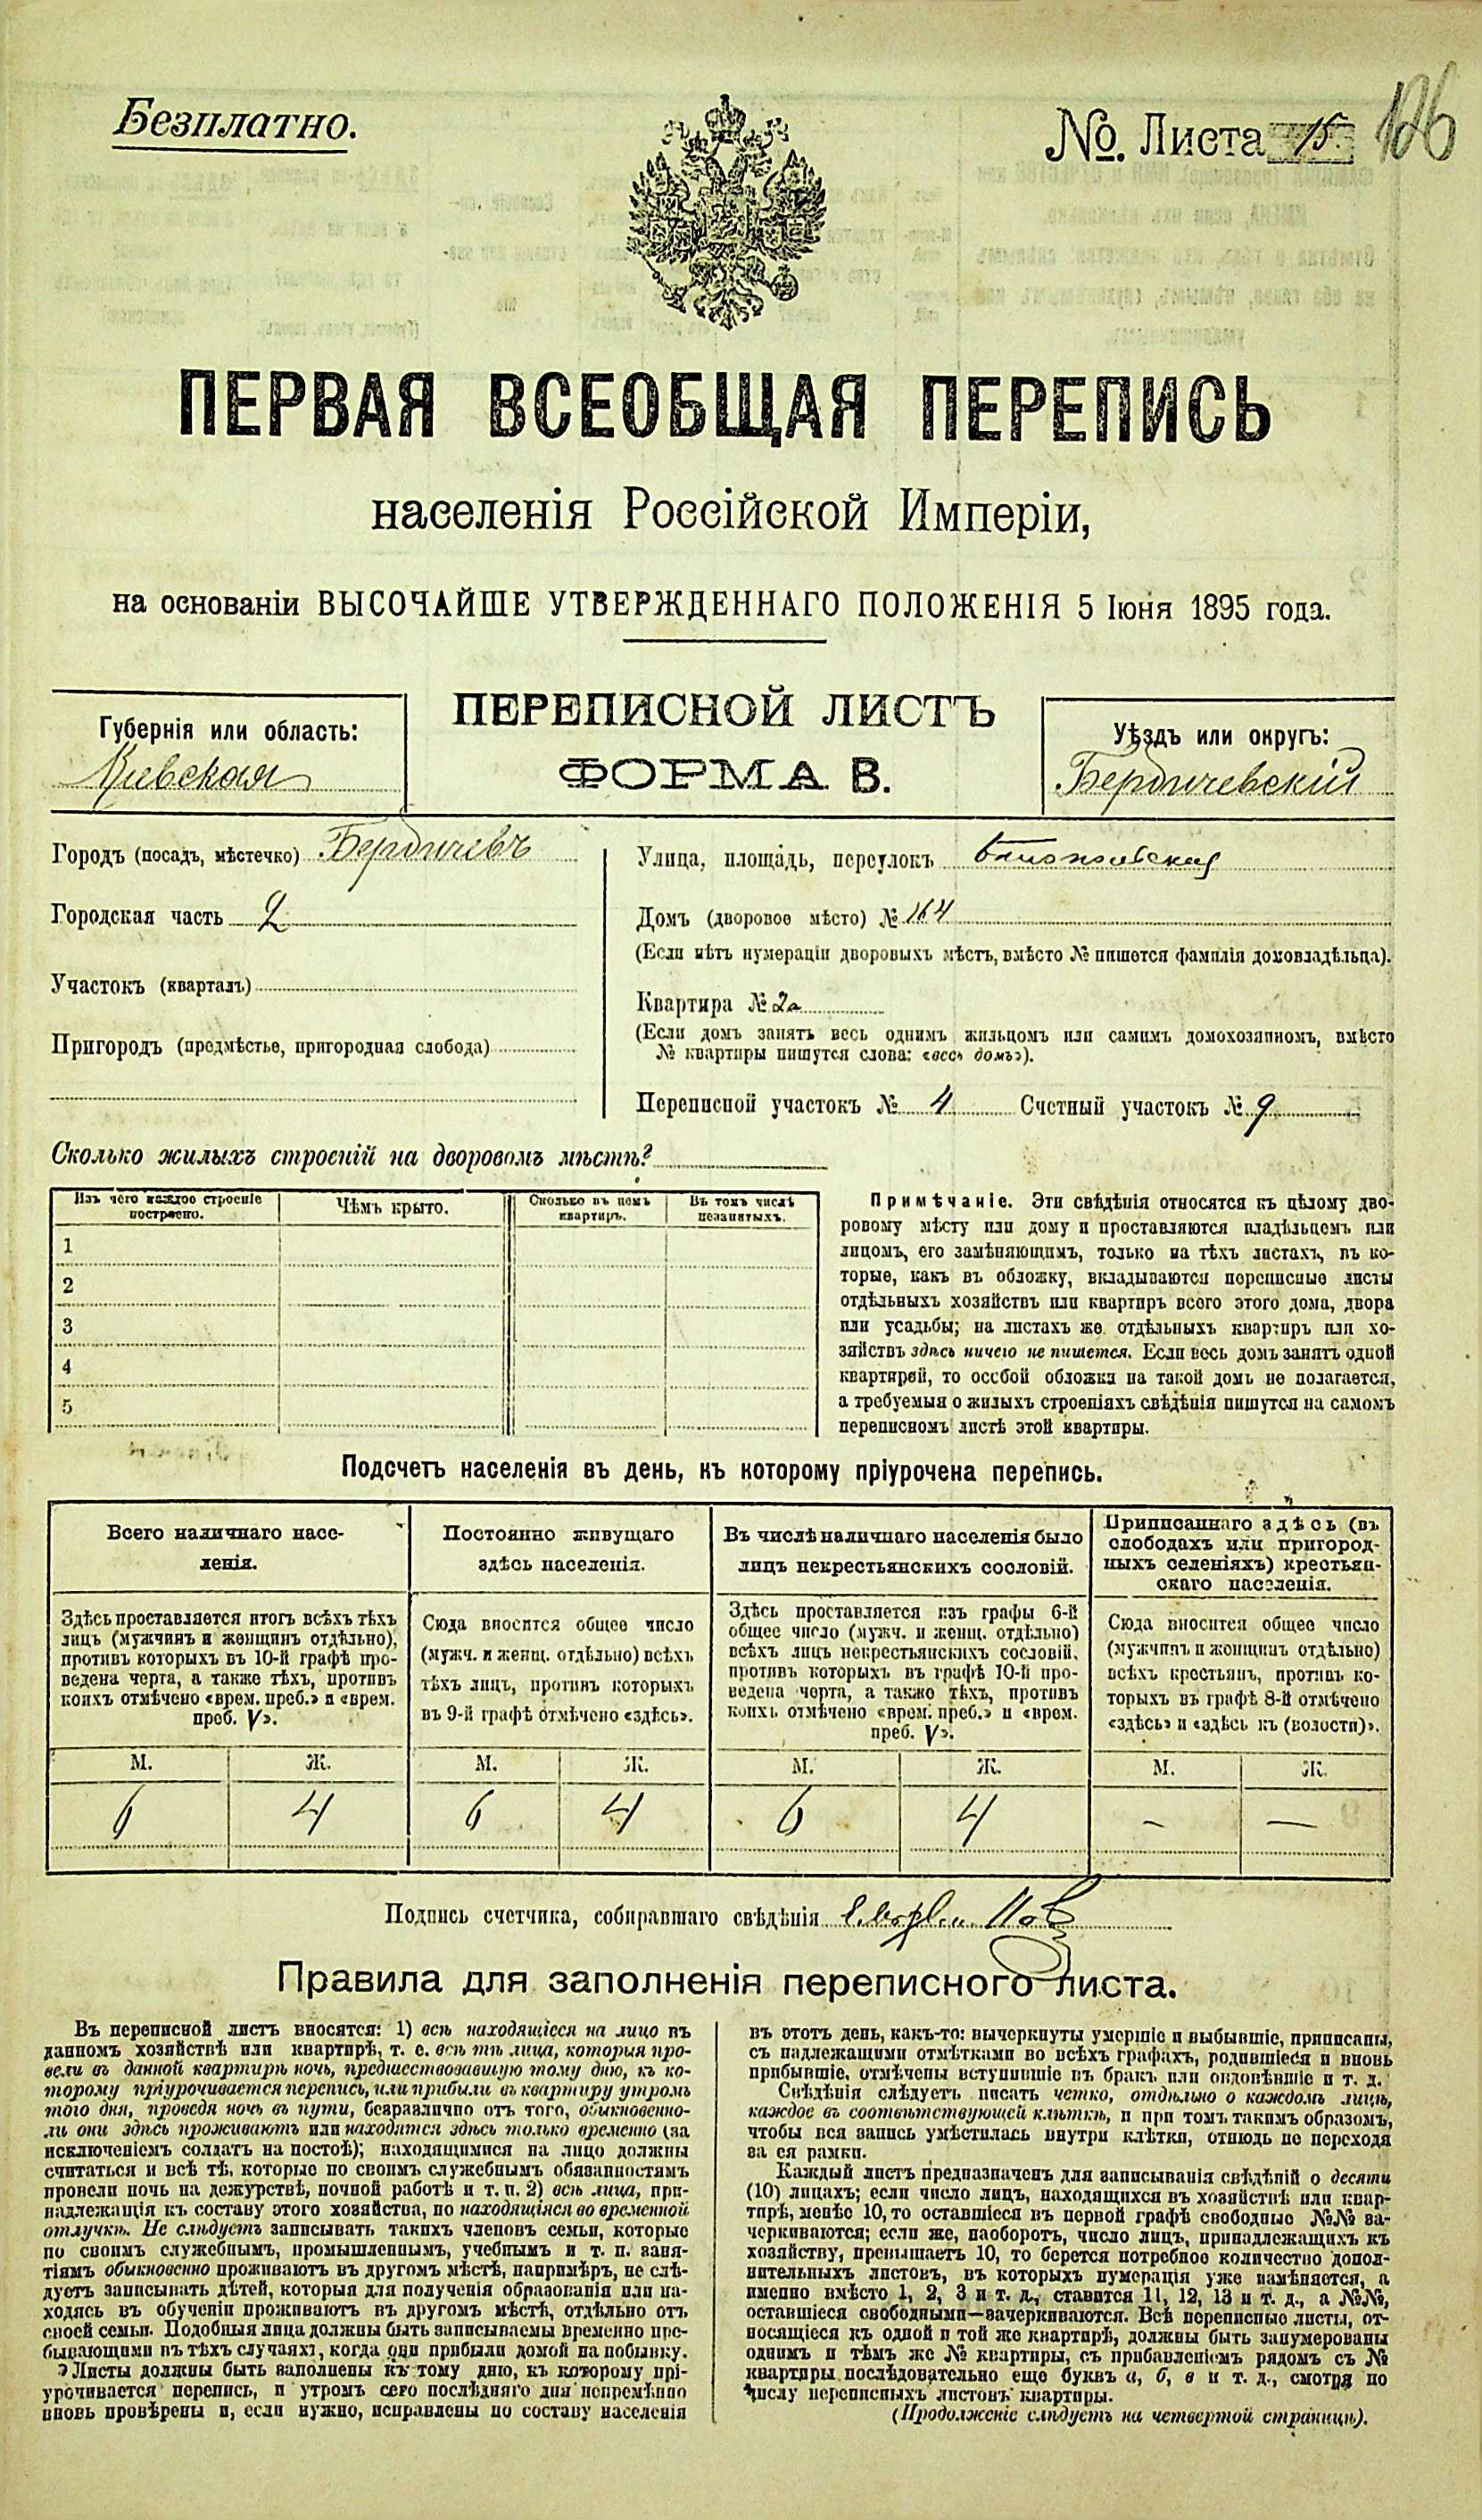 Безплатно.
№. Листа 15. 126
ПЕРВАЯ ВСЕОБЩАЯ ПЕРЕПИСЬ
населенія Россійской Имперіи,
на основаніи ВЫСОЧАЙШЕ УТВЕРЖДЕННАГО ПОЛОЖЕНІЯ 5 Іюня 1895 года.
Губернія или область:
Кіевская
ПЕРЕПИСНОЙ ЛИСТЪ
ФОРМА В.
Уѣздъ или округъ:
Бердичевскій
Городъ (посадъ, мѣстечко) Бердичевъ
Городская часть 2
Участокъ (кварталъ)
Пригородъ (предмѣстье, пригородная слобода)
Улица, площадь, переулокъ
Домъ (дворовое мѣсто) № 164
(Если нѣтъ нумераціи дворовыхъ мѣстъ, вмѣсто № пишется фамилія домовладѣльца).
Квартира № 2а
(Если домъ занятъ весь однимъ жильцомъ или самимъ домохозяиномъ, вмѣсто
№ квартиры пишутся слова: «весь домъ»).
Переписной участокъ № 4 Счетный участокъ № 9
Сколько жилыхъ строеній на дворовомъ мѣстѣ?
Изъ чего каждое строеніе
построено.
Чѣмъ крыто.
Сколько въ немъ
квартиръ.
Въ томъ числѣ
незанятыхъ.
1
2
3
4
5
Примѣчаніе. Эти свѣдѣнія относятся къ цѣлому дво-
ровому мѣсту или дому и проставляются владѣльцемъ или
лицомъ, его замѣняющимъ, только на тѣхъ листахъ, въ ко-
торые, какъ въ обложку, вкладываются переписные листы
отдѣльныхъ хозяйствъ или квартиръ всего этого дома, двора
или усадьбы; на листахъ же отдѣльныхъ квартиръ или хо-
зяйствъ здѣсь ничего не пишется. Если весь домъ занятъ одной
квартирей, то особой обложки на такой домъ не полагается,
а требуемыя о жилыхъ строеніяхъ свѣдѣнія пишутся на самомъ
переписномъ листѣ этой квартиры.
Подсчетъ населенія въ день, къ которому пріурочена перепись.
Всего наличнаго насе-
ленія.
Здѣсь проставляется итогъ всѣхъ тѣхъ
лицъ (мужчинъ и женщинъ отдѣльно),
противъ которыхъ въ 10-й графѣ про-
ведена черта, а также тѣхъ, противъ
коихъ отмѣчено «врем. преб.» и «врем.
преб. V».
М. Ж.
6 4
Постоянно живущаго
здѣсь населенія.
Сюда вносится общее число
(мужч. и женщ. отдѣльно) всѣхъ
тѣхъ лицъ, противъ которыхъ
въ 9-й графѣ отмѣчено «здѣсь».
М. Ж.
6 4
Въ числѣ наличнаго населенія было
лицъ некрестьянскихъ сословій.
Здѣсь проставляется изъ графы 6-й
общее число (мужч. и женщ. отдѣльно)
всѣхъ лицъ некрестьянскихъ сословій,
противъ которыхъ въ графѣ 10-й про-
ведена черта, а также тѣхъ, противъ
коихъ отмѣчено «врем. преб.» и «врем.
преб. V».
М. Ж.
6 4
Приписаннаго здѣсь (въ
слободахъ или пригород-
ныхъ селеніяхъ) крестьян-
скаго населенія.
Сюда вносится общее число
(мужчинъ и женщинъ отдѣльно)
всѣхъ крестьянъ, противъ ко-
торыхъ въ графѣ 8-й отмѣчено
«здѣсь» и «здѣсь къ (волости)».
М. Ж.
— —
Подпись счетчика, собиравшаго свѣдѣнія
Правила для заполненія переписного листа.
Въ переписной листъ вносятся: 1) всѣ находящіеся на лицо въ
данномъ хозяйствѣ или квартирѣ, т. е. всѣ тѣ лица, которыя про-
вели въ данной квартирѣ ночь, предшествовавшую тому дню, къ ко-
торому пріурочивается перепись, или прибыли въ квартиру утромъ
того дня, проведя ночь въ пути, безразлично отъ того, обыкновенно-
ли они здѣсь проживаютъ или находятся здѣсь только временно (за
исключеніемъ солдатъ на постоѣ); находящимися на лицо должны
считаться и всѣ тѣ, которые по своимъ служебнымъ обязанностямъ
провели ночь на дежурствѣ, ночной работѣ и т. п. 2) всѣ лица, при-
надлежащія къ составу этого хозяйства, но находящіяся во временной
отлучкѣ. Не слѣдуетъ записывать такихъ членовъ семьи, которые
по своимъ служебнымъ, промышленнымъ, учебнымъ и т. п. заня-
тіямъ обыкновенно проживаютъ въ другомъ мѣстѣ, напримѣръ, не слѣ-
дуетъ записывать дѣтей, которыя для полученія образованія или на-
ходясь въ обученіи проживаютъ въ другомъ мѣстѣ, отдѣльно отъ
своей семьи. Подобныя лица должны быть записываемы временно пре-
бывающими въ тѣхъ случаяхъ, когда они прибыли домой на побывку.
Листы должны быть заполнены къ тому дню, къ которому прі-
урочивается перепись, и утромъ сего послѣдняго дня непремѣнно
вновь провѣрены и, если нужно, исправлены по составу населенія
въ этотъ день, какъ-то: вычеркнуты умершіе и выбывшіе, приписаны,
съ надлежащими отмѣтками во всѣхъ графахъ, родившіеся и вновь
прибывшіе, отмѣчены вступившіе въ бракъ или овдовѣвшіе и т. д.
Свѣдѣнія слѣдуетъ писать четко, отдѣльно о каждомъ лицѣ,
каждое въ соотвѣтствующей клѣткѣ, и при томъ такимъ образомъ,
чтобы вся запись умѣстилась внутри клѣтки, отнюдь не переходя
за ея рамки.
Каждый листъ предназначенъ для записыванія свѣдѣній о десяти
(10) лицахъ; если число лицъ, находящихся въ хозяйствѣ или квар-
тирѣ, менѣе 10, то оставшіеся въ первой графѣ свободные №№ за-
черкиваются; если же, наоборотъ, число лицъ, принадлежащихъ къ
хозяйству, превышаетъ 10, то берется потребное количество допол-
нительныхъ листовъ, въ которыхъ нумерація уже измѣняется, а
именно вмѣсто 1, 2, 3 и т. д., ставится 11, 12, 13 и т. д., а №№,
оставшіеся свободными—зачеркиваются. Всѣ переписные листы, от-
носящіеся къ одной и той же квартирѣ, должны быть занумерованы
однимъ и тѣмъ же № квартиры, съ прибавленіемъ рядомъ съ №
квартиры послѣдовательно еще буквъ а, б, в и т. д., смотря по
числу переписныхъ листовъ квартиры.
(Продолженіе слѣдуетъ на четвертой страницѣ).